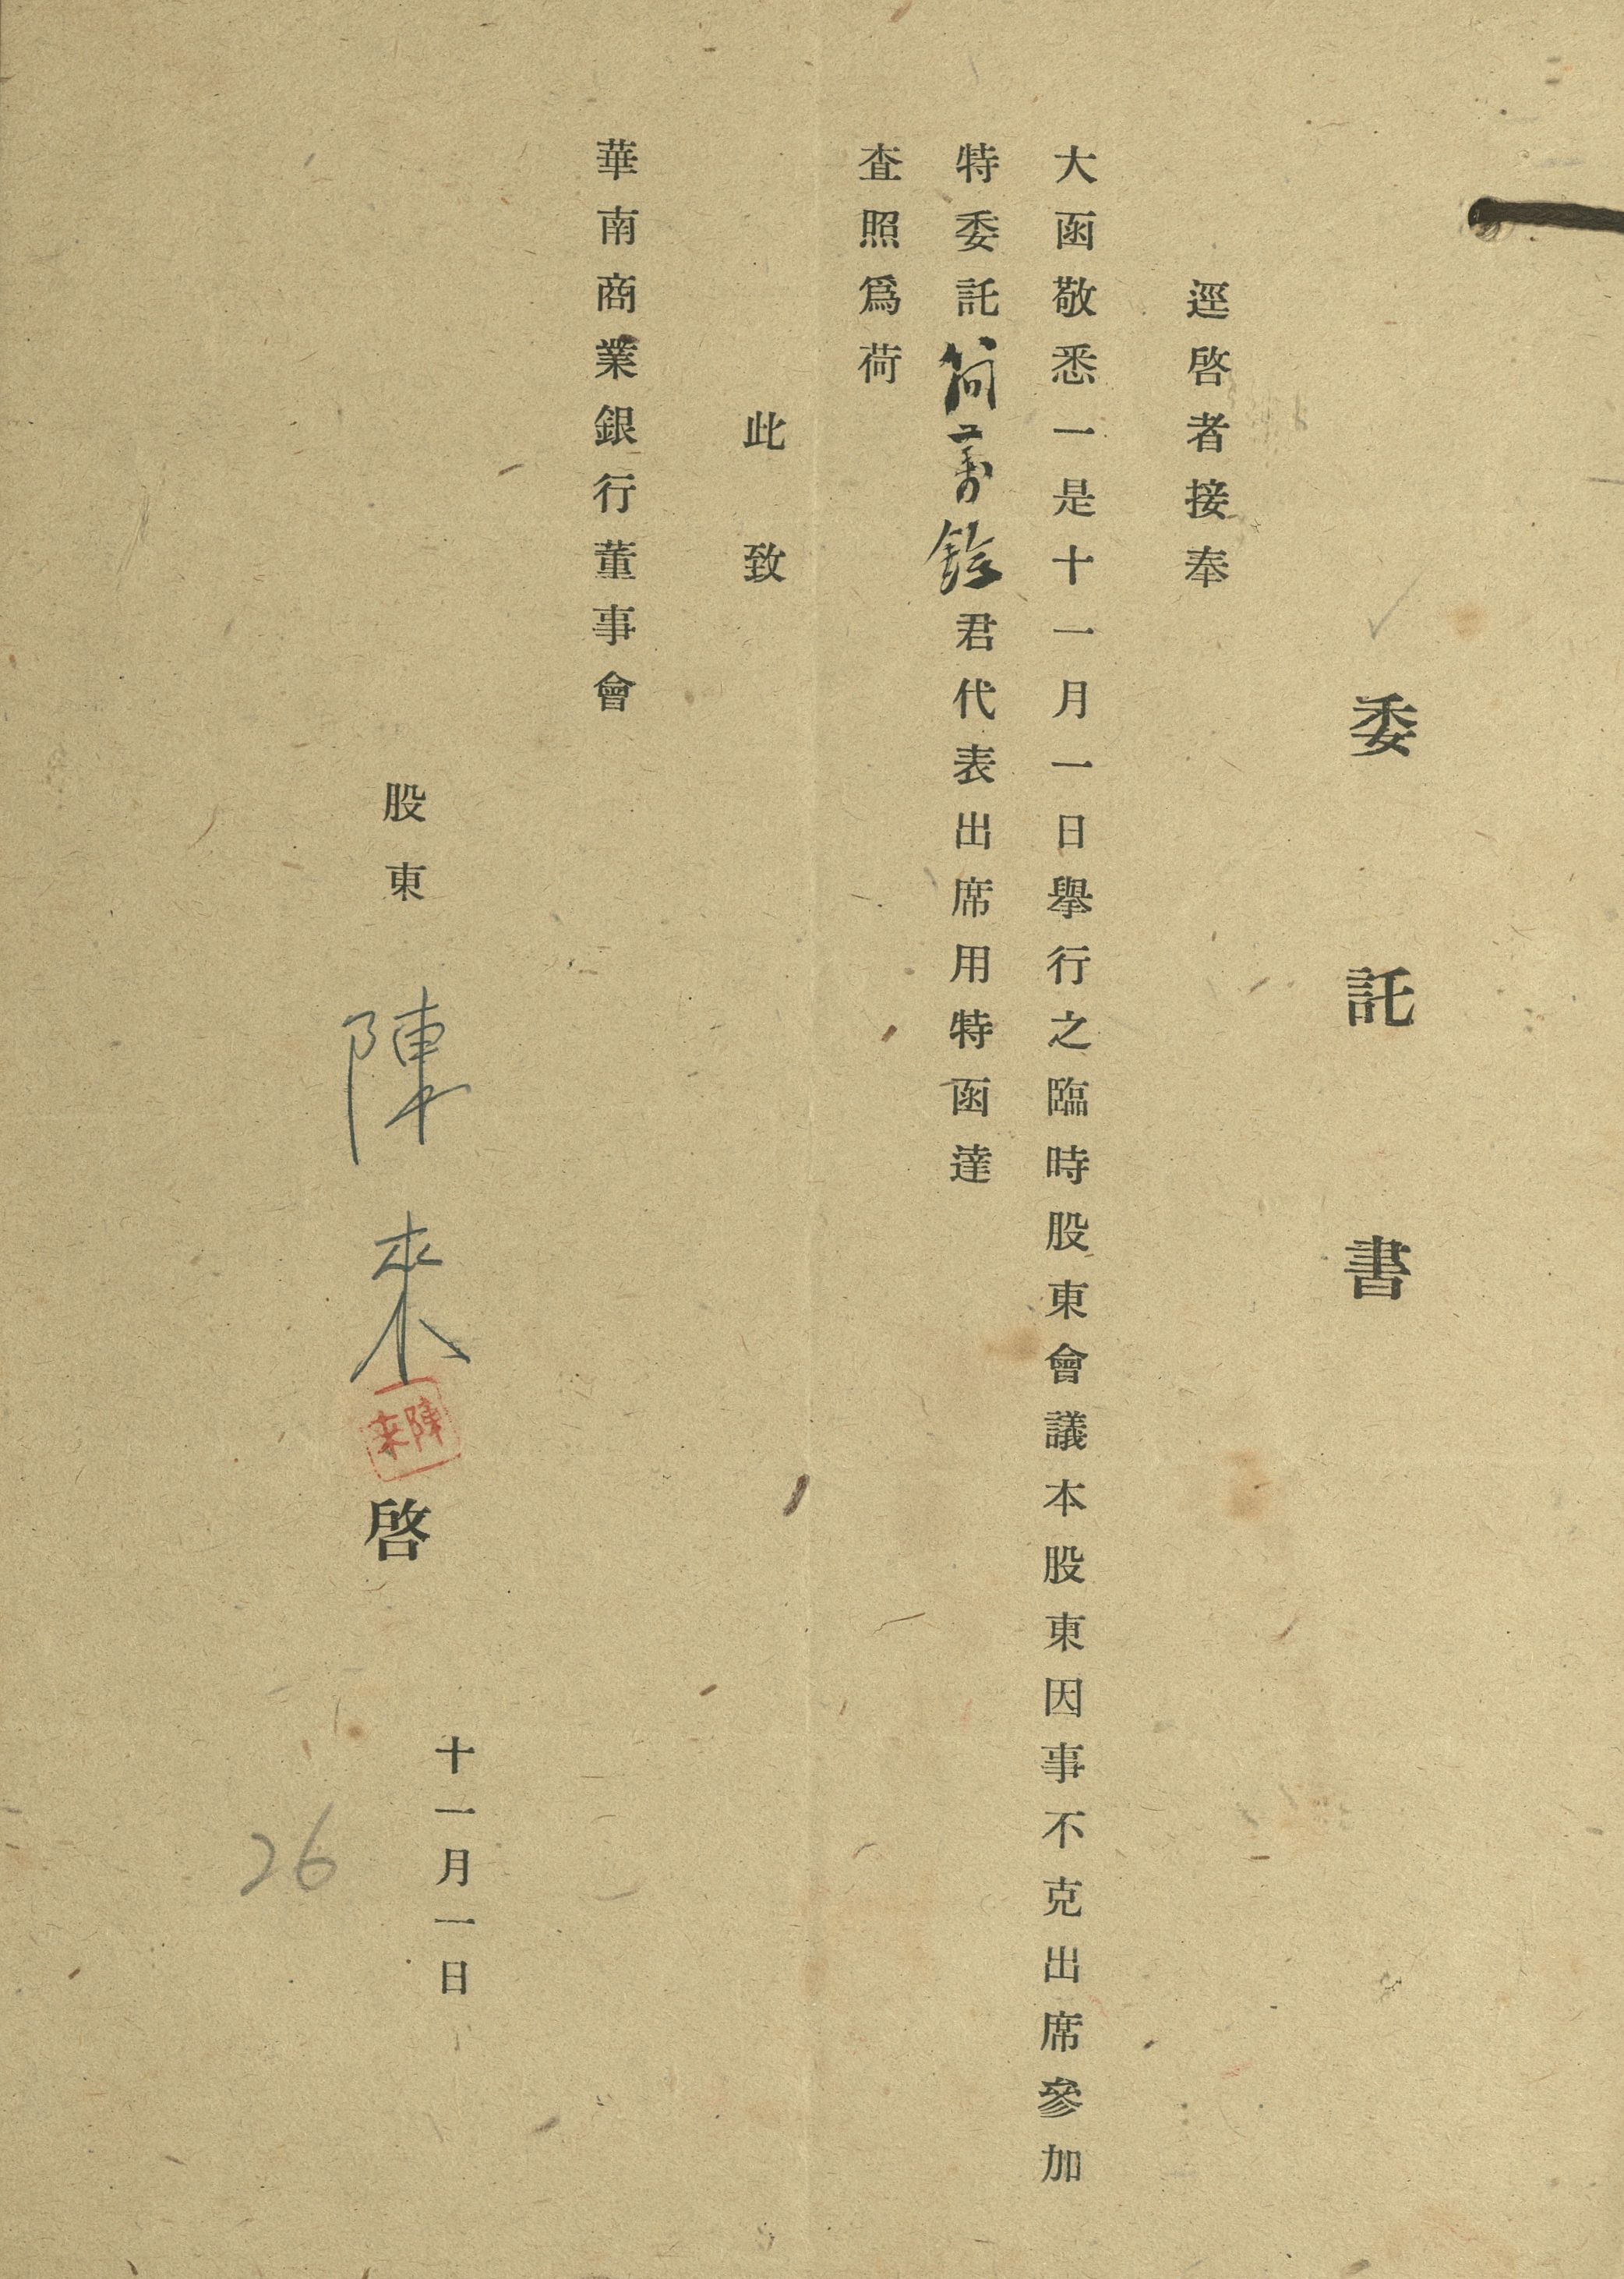 委託書
逕啓者接奉
大函敬悉一是十一月一日舉行之臨時股東會議本股東因事不克出席參加
特委託簡萬君代表出席用特函達
査照爲荷
此致
華南商業銀行董事會
股東 陳來 啓
陳來
十一月一日
26